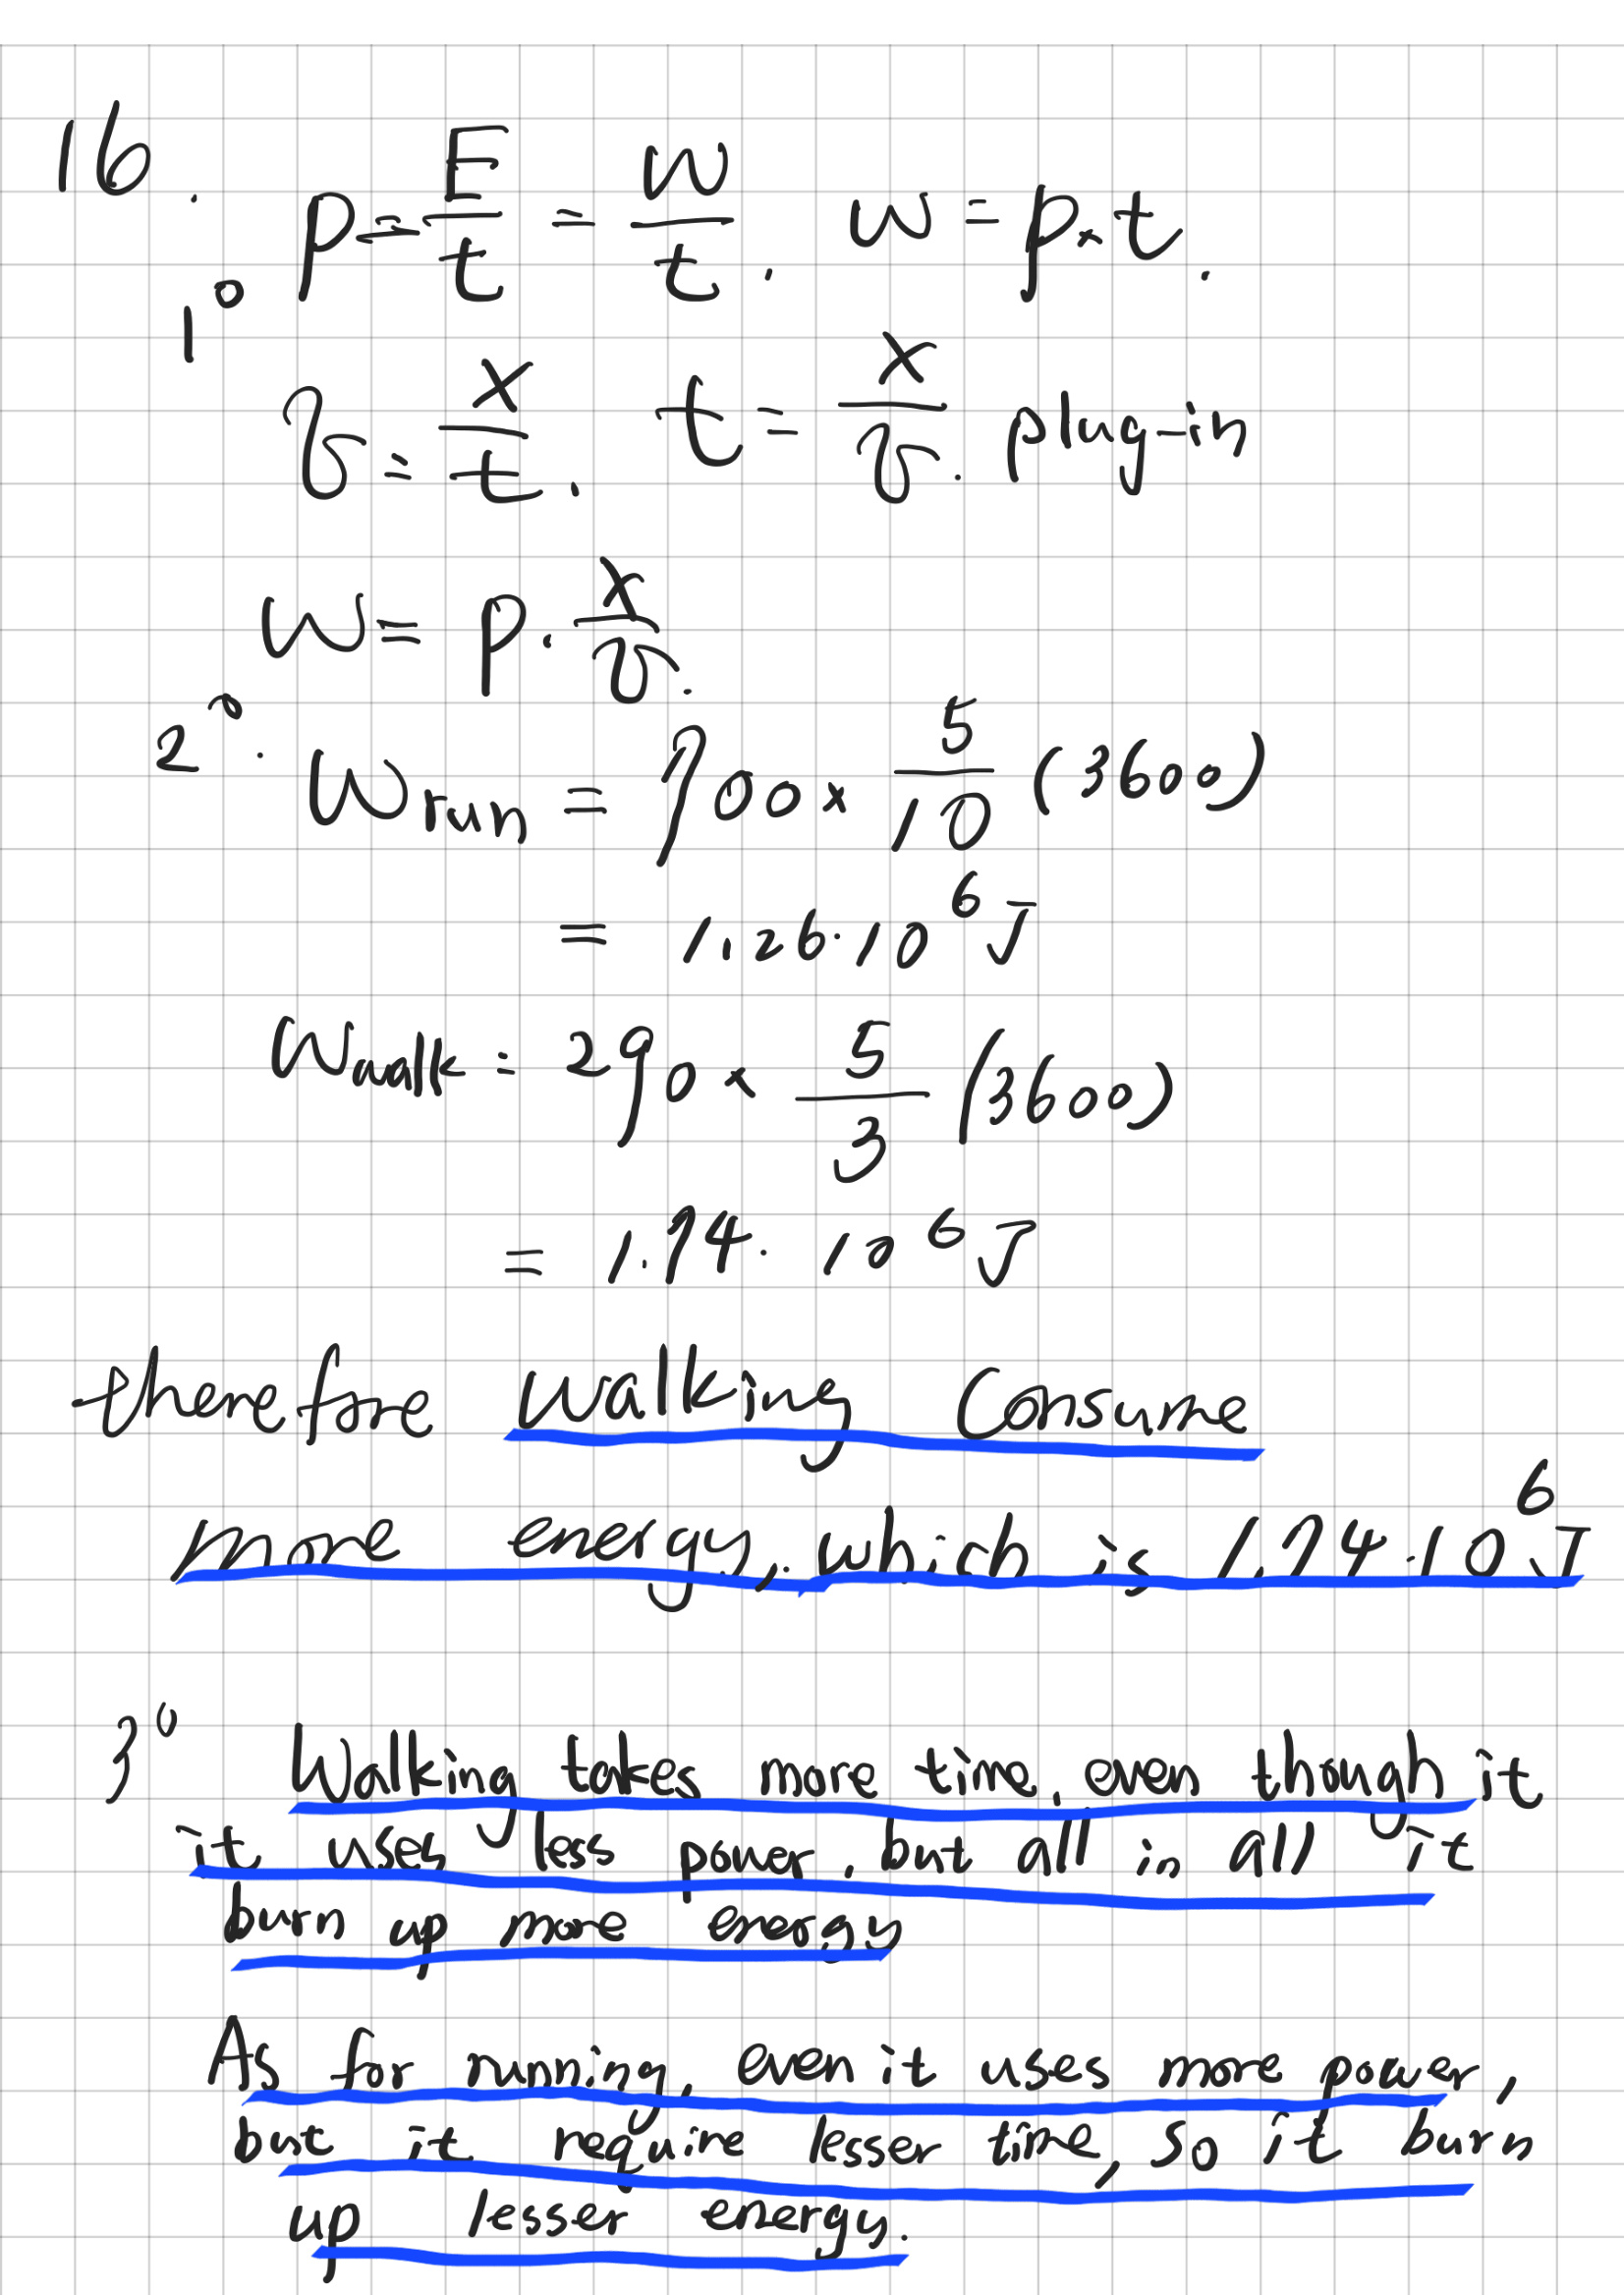 16.
P = E/t = W/t. W = P×t.
1°
v = x/t. t = x/v. plug-in
W = P · x/v.
2°. Wrun = 700 × 5/10 (3600)
= 1.26·10⁶ J
Wwalk = 290 × 5/3 (3600)
= 1.74·10⁶ J
therefore walking consume
more energy, which is 1.74·10⁶ J
3° Walking takes more time, even though it
it uses less power, but all in all it
burn up more energy
As for running, even it uses more power,
but it require lesser time, so it burn
up lesser energy.